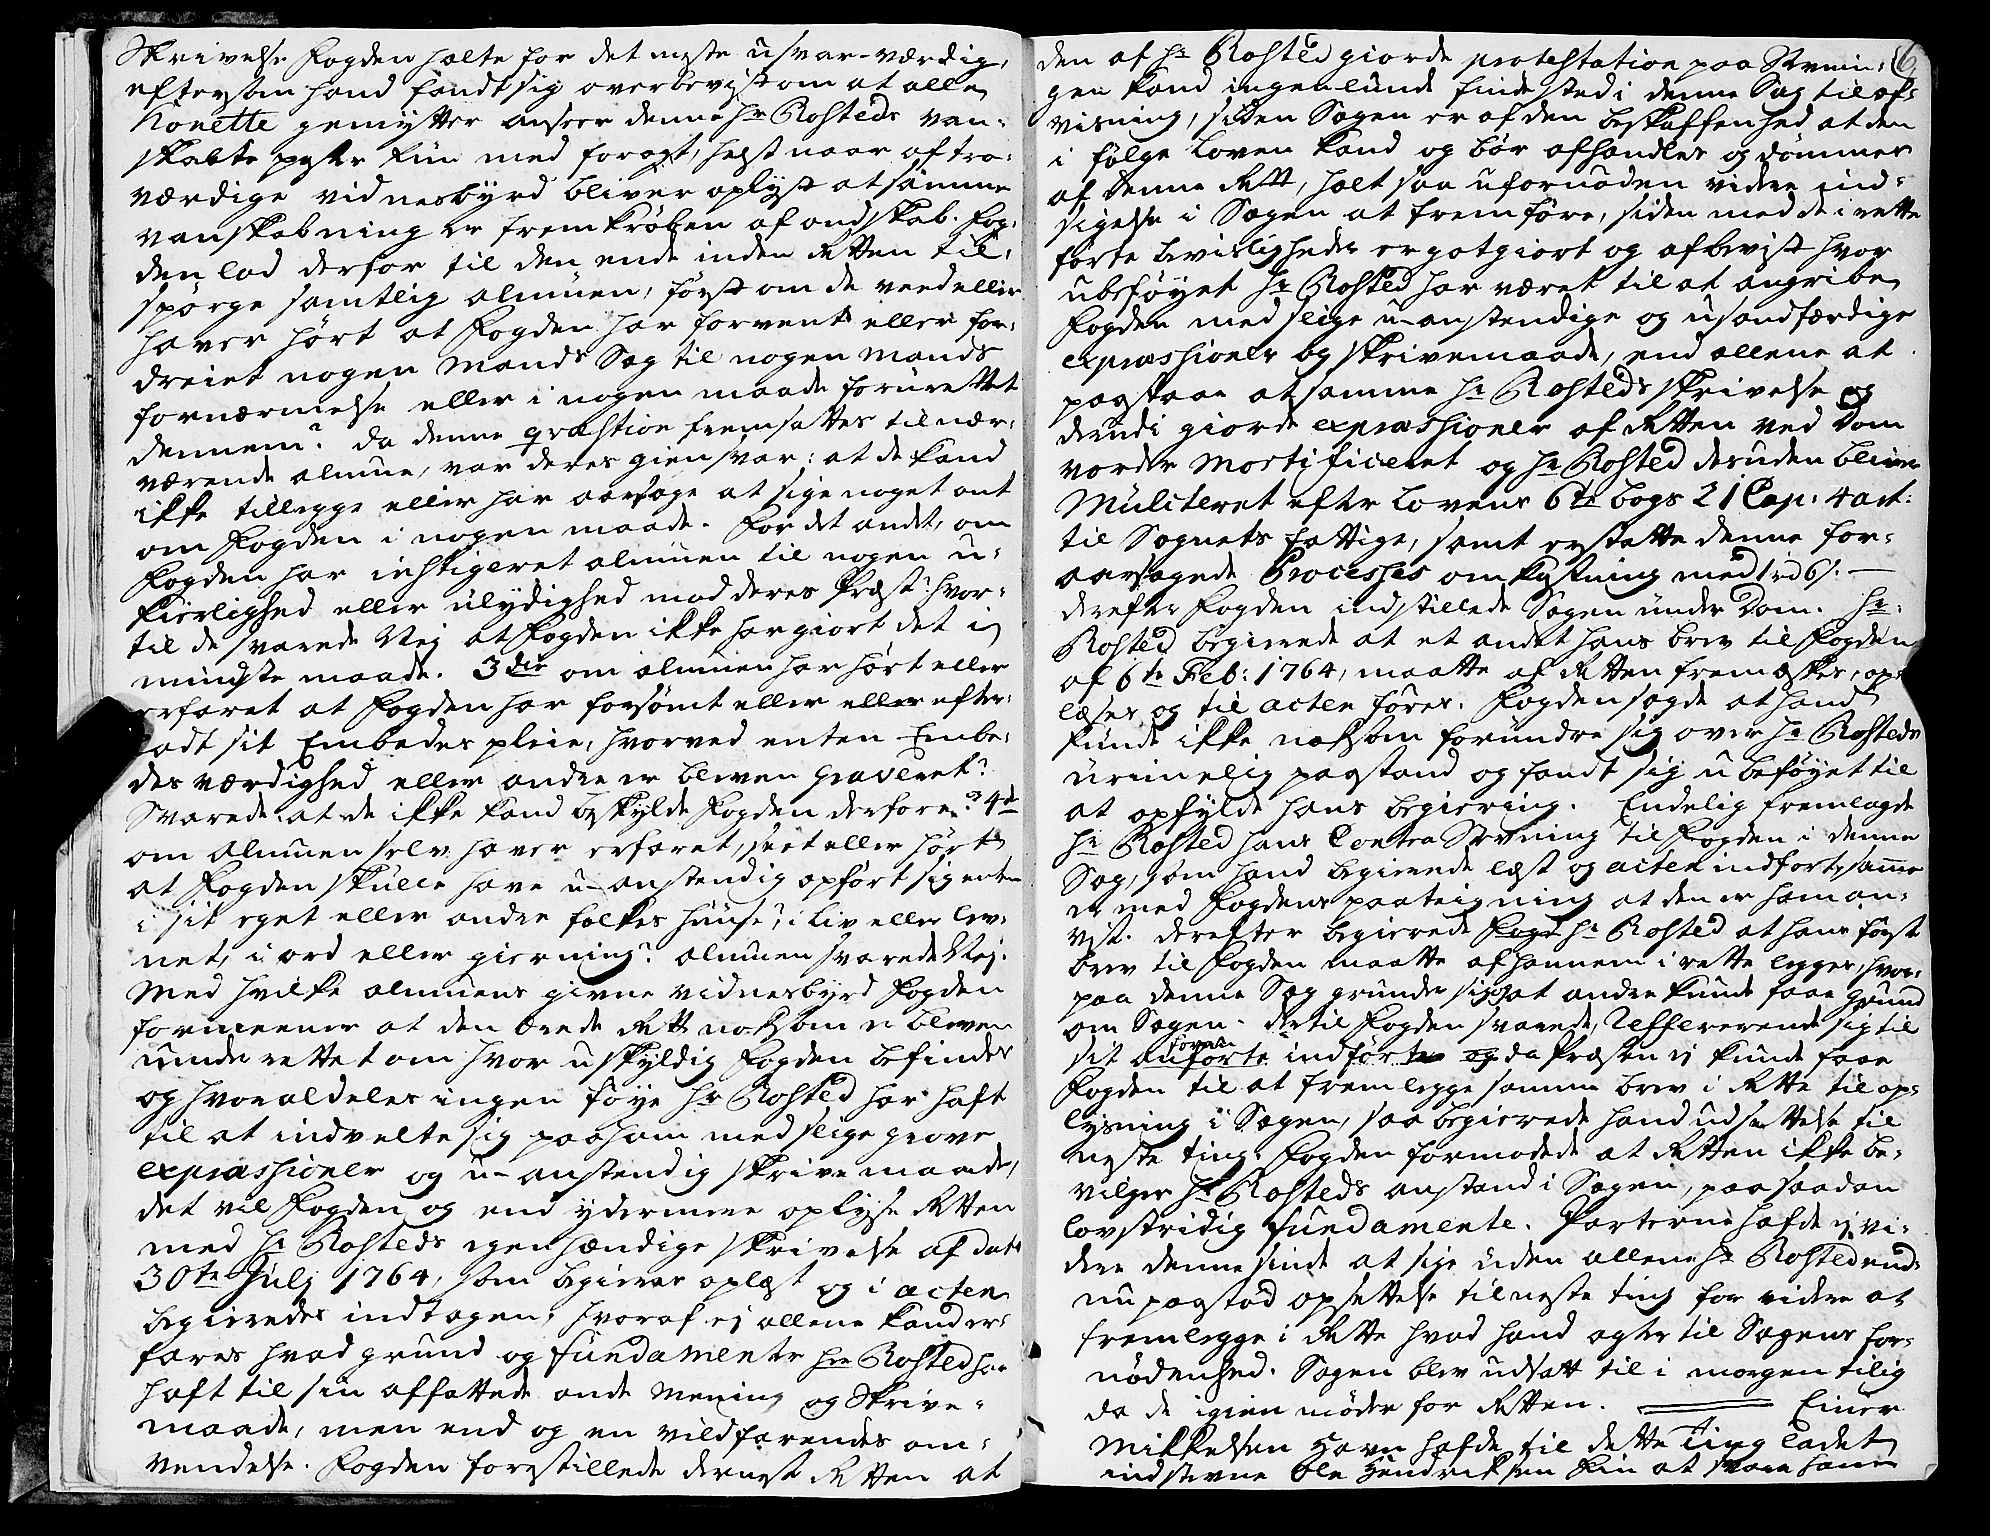 Skrivelse Fogden holte for det meste u svar-værdig,
eftersom hand fandt sig overbevjst om at alle
honette gemytter anseer denne Hr Rosteds van-
skabte pyster kun med foragt, helst naar af tro-
værdige vidnesbyrd bliver oplyst at samme
vanskabning er fremkrøben af ondskab. Fog-
den lod derfor til den ende inden Retten til-
spørge samtlig almuen, først om de veed eller
haver hørt at Fogden har forvent eller for-
dreiet nogen mands Sag til nogen mands
fornærmelse eller i nogen maade forurettet
dennem? da denne qvæstion fremsattes til nær-
værende almue, var deres giensvar: at de kand
ikke tillegge eller har aarsage at sige noget ont
om Fogden i nogen maade. For det andet, om
Fogden har instigeret almuen til nogen u-
kierlighed eller ulydighed mod deres Præst? hvor-
til de svarede Nej at Fogden ikke har giort det i
mindste maade. 3die om almuen har hørt eller
erfaret at Fogden har forsømt eller eller efter-
ladt sit Embedes pleie, hvorved enten Embe-
des værdighed eller andre er bleven graveret?
Svarede at de ikke kand beskylde Fogden derfore? 4de
om almuen selv haver erfaret, seet eller hørt
at Fogden skulle have u-anstendig opført sig enten
i sit eget eller andre folkes huuse? i liv eller lev-
net, i ord eller gierning? almuen svarede Nej.
Med hvilke almuens givne vidnesbyrd Fogden
formeener at den ærede Rett noksom er bleven
underrettet om hvor uskyldig Fogden befindes
og hvor aldeles ingen føye Hr Rosted har haft
til at indvelte sig paa ham med slige grove
expræssioner og u-anstendig skrivemaade,
det vil Fogden og end ydermere oplyse Retten
med Hr Rosteds egenhændige skrivelse af dato
30te Julj 1764, som begieres oplæst og i acten
begieredes indtagen, hvoraf ej allene kand er-
fares hvad grund og fundamente Hr Rosted har
haft til sin affattede onde Mening og Skrive-
maade, men end og en vildfarendes om-
vendelse. Fogden forestillede dernest Retten at
den af Hr Rosted giorde protestation paa Stevnin-
gen kand ingenlunde finde sted i denne Sag til af-
visning, siden Sagen er af den beskaffenhed at den
i følge Loven kand og bør afhandles og dømmes
af denne Rett, holt saa ufornøden videre ind-
sigelse i Sagen at fremføre, siden med de i rette
førte beviisligheder er gotgiort og afbevist hvor
ubeføyet Hr Rosted har været til at angribe
Fogden med slige u-anstendige og usandfærdige
expræssioner og skrivemaade, end allene at
paastaae at samme Hr Rosteds skrivelse og
derudi giorde expræssioner af Retten ved Dom
vorder Mortificeret og Hr Rosted desuden bliver
Mulcteret efter Lovens 6te bogs 21 Cap: 4 art:
til Sognets fattige, samt erstatte denne for-
aarsagede Processes omkostning med 1 rd 6 s. —
derefter Fogden indstillede Sagen under Dom. Hr:
Rosted begierede at et andet hans brev til Fogden
af 6te Feb: 1764, maatte af Retten fremæskes, op-
læses og til acten føres. Fogden sagde at hand
kunde ikke noksom forundre sig over Hr Rosteds
urimelig paastand og fandt sig u beføyet til
at opfylde hans begiering. Endelig fremlagde
Hr Rosted hans Contra Stevning til Fogden i denne
Sag, som hand begierede læst og acten indført, samme
er med Fogdens paateigning at den er ham an-
vist. derefter begierede Hr Rosted at hans først
brev til Fogden maatte af hannem i rette legges, hvor-
paa denne Sag grunder sig, at andre kunde faae grund
om Sagen. dertil Fogden svarede, Reffererende sig til
sit forhen indførte og da Præsten ej kunde faae
Fogden til at fremlegge samme brev i Rette til op-
lysning i Sagen, saa begierede hand udsættelse til
neste ting. Fogden formodede at Retten ikke be-
vilger Hr Rosteds anstand i Sagen, paa saadan
lovstridig fundamente. Parterne hafde ej vi-
dere denne sinde at sige uden allene Hr Rosted end-
nu paastod opsettelse til neste ting for videre at
fremlegge i Rette hvad hand agter til Sagens for-
nødenhed. Sagen blev udsatt til i morgen tilig
da de igien møder for Retten. Einer
Mikkelsen Havn hafde til dette Ting ladet
indstevne Ole Hendriksen Kin at svare ham